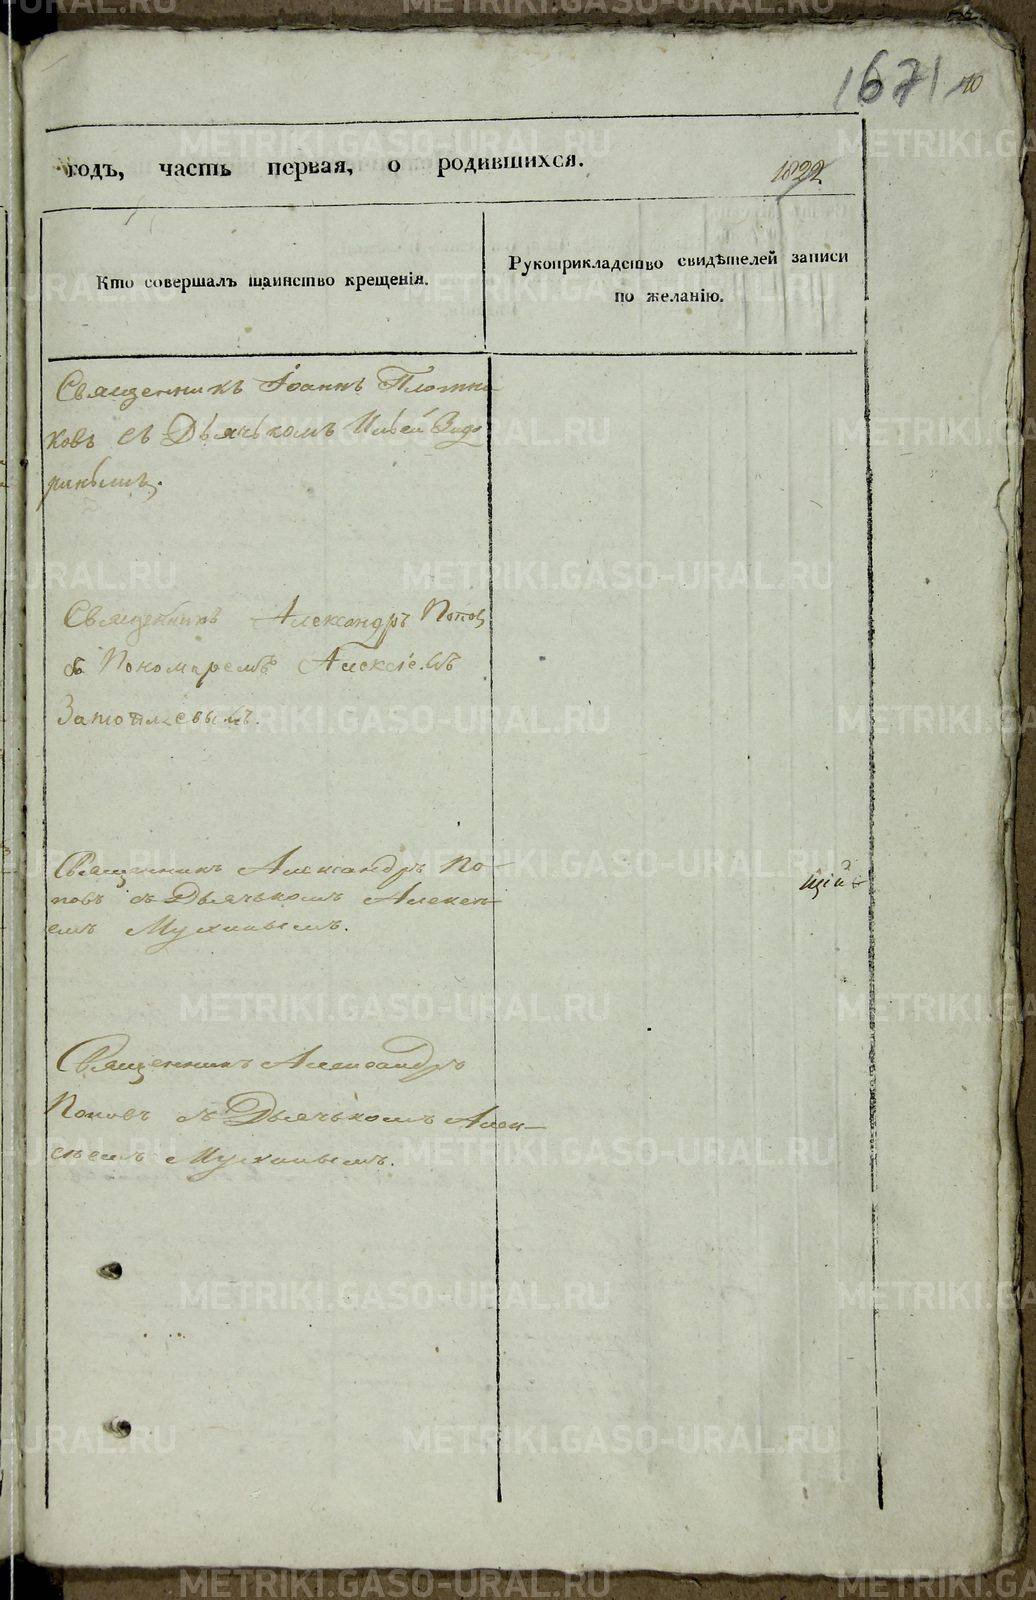 1671
10
годъ, часть первая, о родившихся.
1822
Кто совершалъ таинство крещенія.
Рукоприкладство свидѣтелей записи
по желанію.
Священникъ Іоаннъ Плотни
ковъ съ Дьячькомъ Ильей
Священникъ Александръ Попов
съ Пономаремъ Алексіемъ
Затопляевымъ.
Священникъ Александръ По-
повъ съ Дьячькомъ Алексе-
емъ Мухинымъ.
щій
Священникъ Александръ
Поповъ съ Дьячькомъ Алек-
сѣемъ Мухинымъ.
METRIKI.GASO-URAL.RU